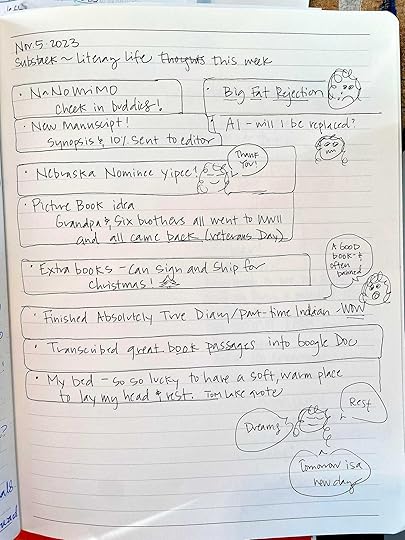 Nov. 5. 2023
Substack ~ Literary Life Thoughts this week
· NaNoWriMo
Check in buddies!
· Big Fat Rejection
· New Manuscript!
Synopsis & 10% sent to editor
· AI - will I be replaced?
· Nebraska Nominee yipee!
THANK YOU!
· Picture Book idea
Grandpa & Six brothers all went to WWII
and all came back (Veterans Day)
· Extra books - can sign and ship for
Christmas!
A GOOD
book - &
often
banned
· Finished Absolutely True Diary/Part-time Indian - WOW
· Transcribed great book passages into Google Doc
· My bed - so so lucky to have a soft, warm place
to lay my head & rest. Tom Lake quote
Rest
Dreams
Tomorrow is a
new day